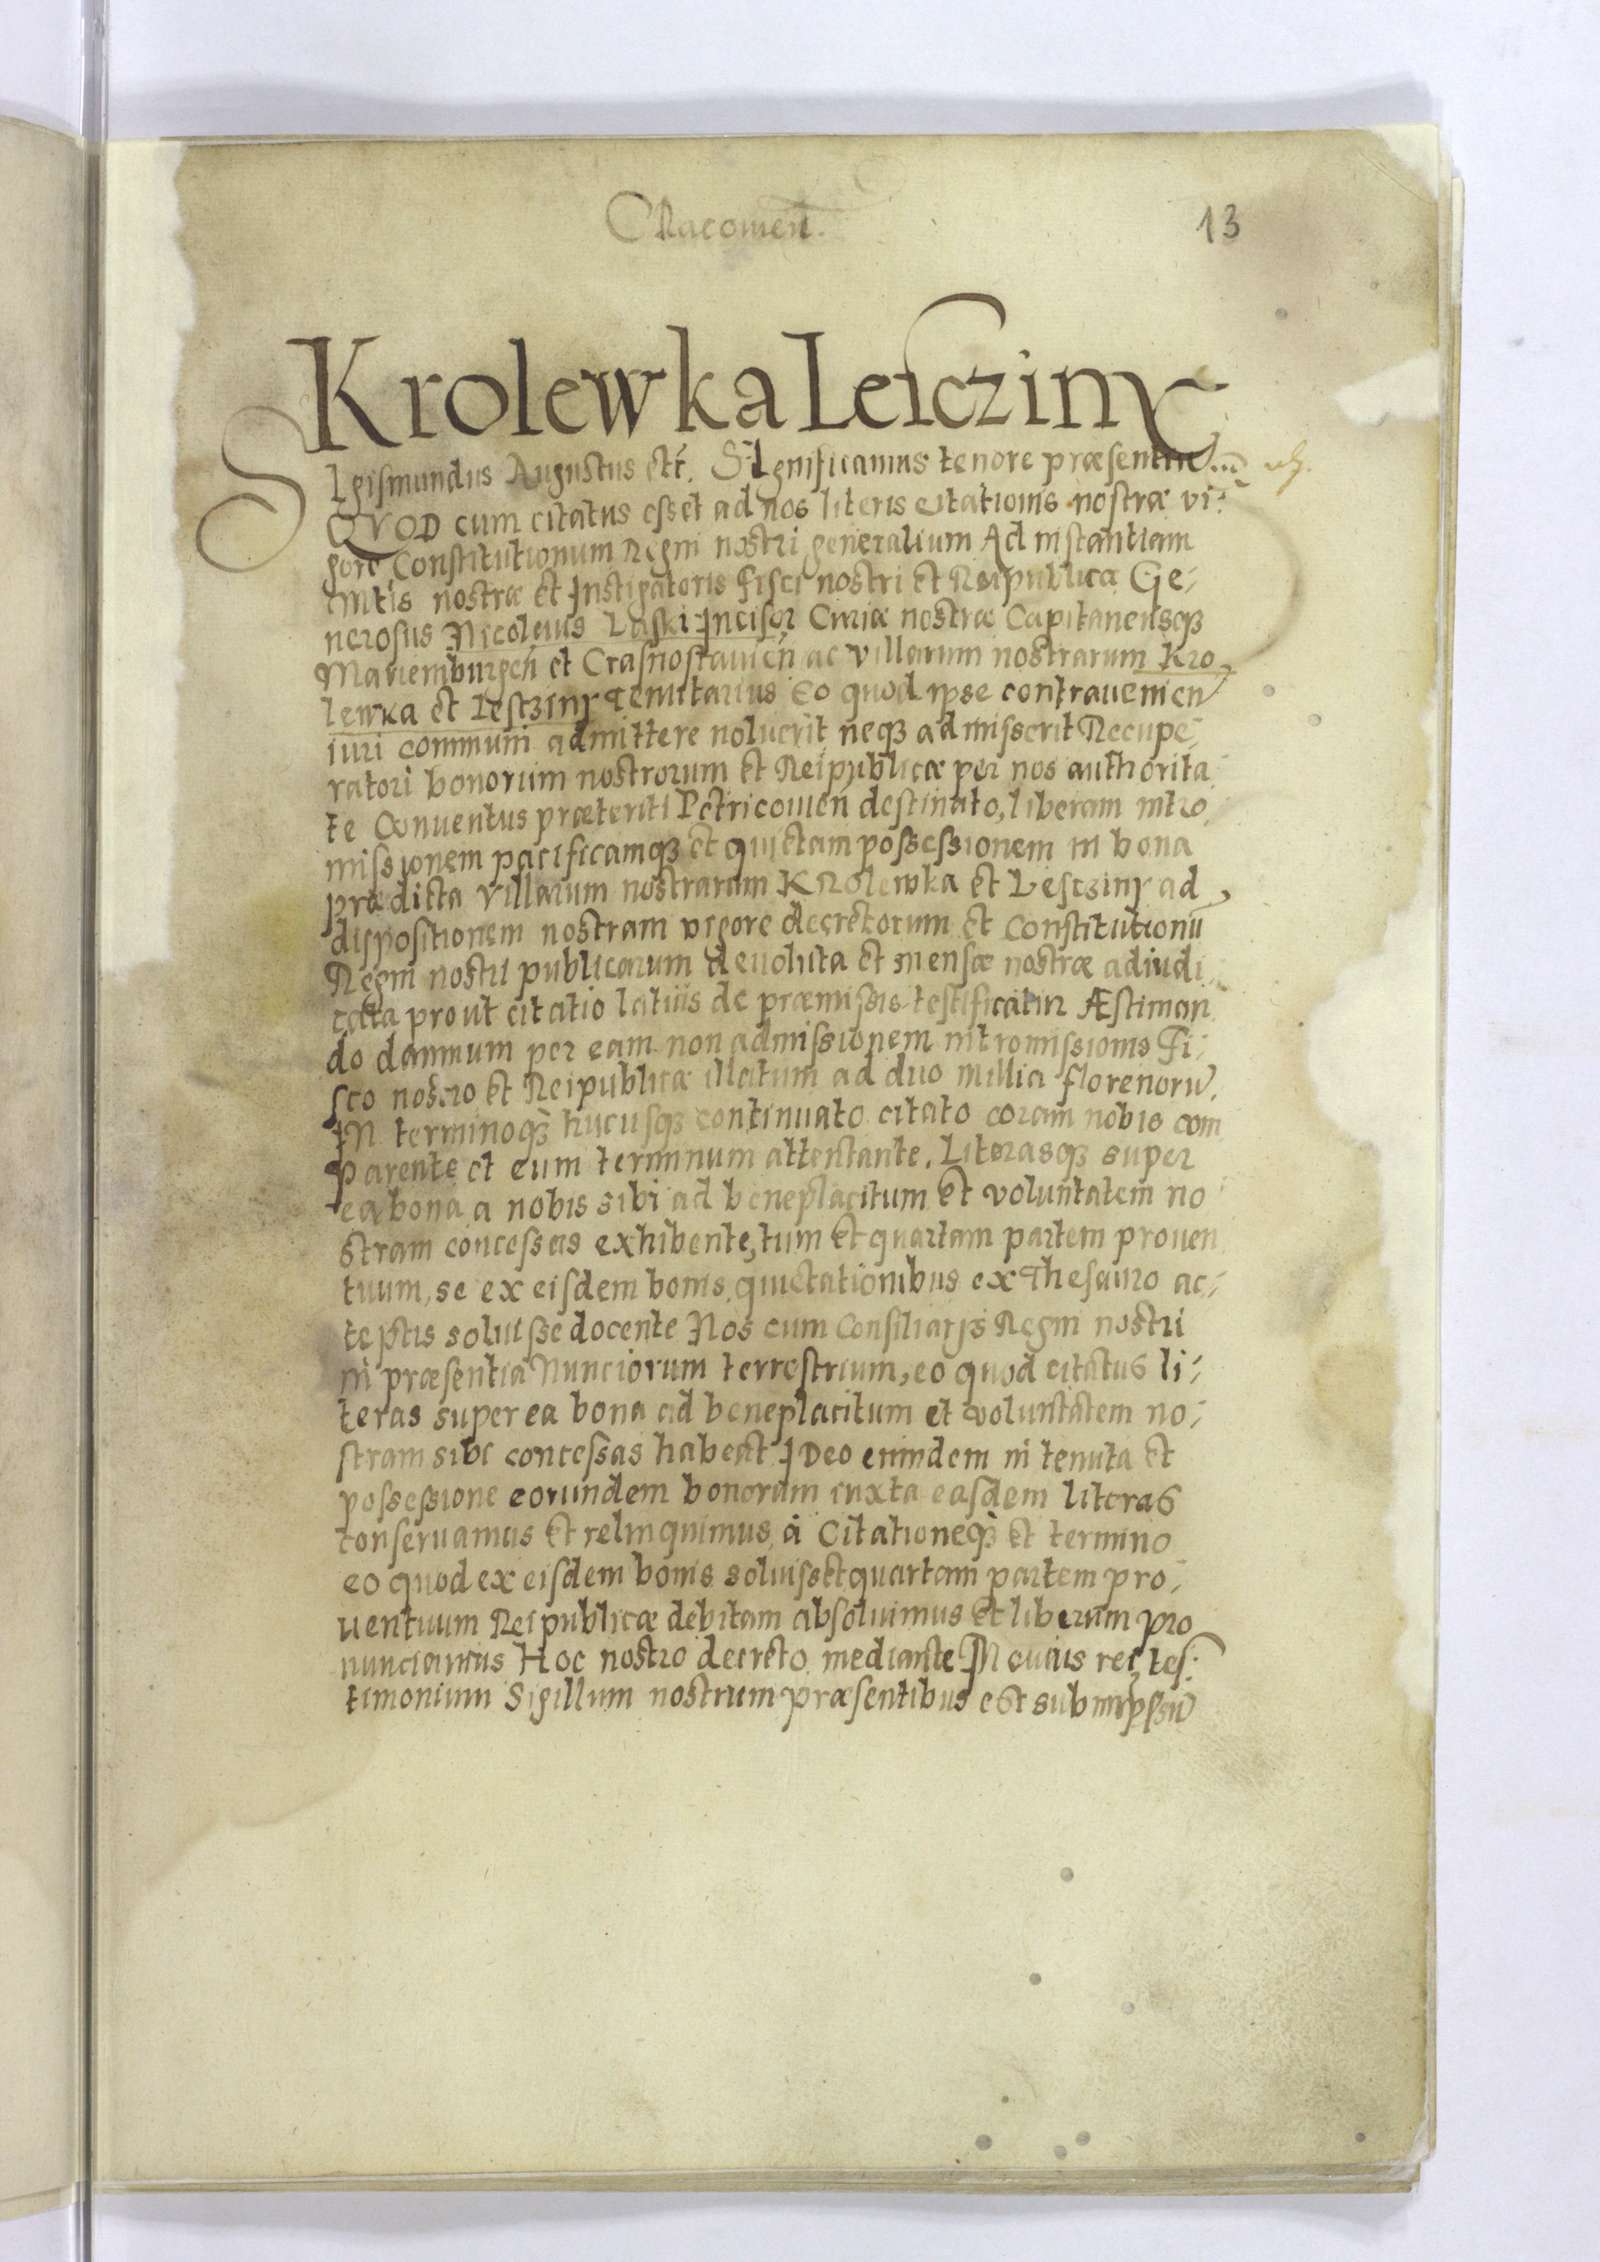 Cracouien.
13
Krolewka Lescziny
SIgismundus Augustus etc. SIgnificamus tenore præsentiu...
QVOD cum citatus esset ad nos literis citationis nostræ vi:
gore Constitutionum Regni nostri generalium Ad instantiam
Mtis nostræ et Instigatoris fisci nostri et Reipublicæ Ge:
nerosus Nicolaus Laski Incisor Curiæ nostræ Capitaneusqз
Mariemburgeñ et Crasnostauieñ ac villarum nostrarum Kro,
lewka et Lescziny tenutarius Eo quod ipse contraueniens
iuri communi admittere noluerit neqз admisserit Recupe,
ratori bonorum nostrorum et Reipublicæ per nos authorita
te Conuentus præteriti Petricouieñ destinato, liberam intro,
missionem pacificamqз et quietam possessionem in bona
prædicta Villarum nostrarum Krolewka et Lescziny ad
dispositionem nostram vigore decretorum et Constitutionũ
Regni nostri publicarum deuoluta et mensæ nostræ adiudi,
cata prout citatio latius de præmissis testificatur Æstiman
do damnum per eam non admissionem intromissionis Fi:
sco nostro et Reipublicæ illatum ad duo millia florenorũ.
IN terminoqз hucusqз continuato citato coram nobis com
parente et eum terminum attentante. Literasqз super
ea bona a nobis sibi ad beneplacitum et voluntatem no
stram concessas exhibente, tum et quartam partem prouen
tuum, se ex eisdem bonis, quietationibus ex Thesauro ac:
ceptis soluisse docente Nos cum Consiliarijs Regni nostri
in præsentia Nunciorum terrestrium, eo quod citatus li:
teras super ea bona ad beneplacitum et voluntatem no:
stram sibi concessas habeat IDeo eundem in tenuta et
possessione eorundem bonorum iuxta easdem literas
conseruamus et relinquimus, à Citationeqз et termino
eo quod ex eisdem bonis soluisset quartam partem pro:
uentuum Reipublicæ debitam absoluimus et liberum pro
nunciamus Hoc nostro decreto mediante IN cuius rei tes:
timonium Sigillum nostrum præsentibus est subimpssũ